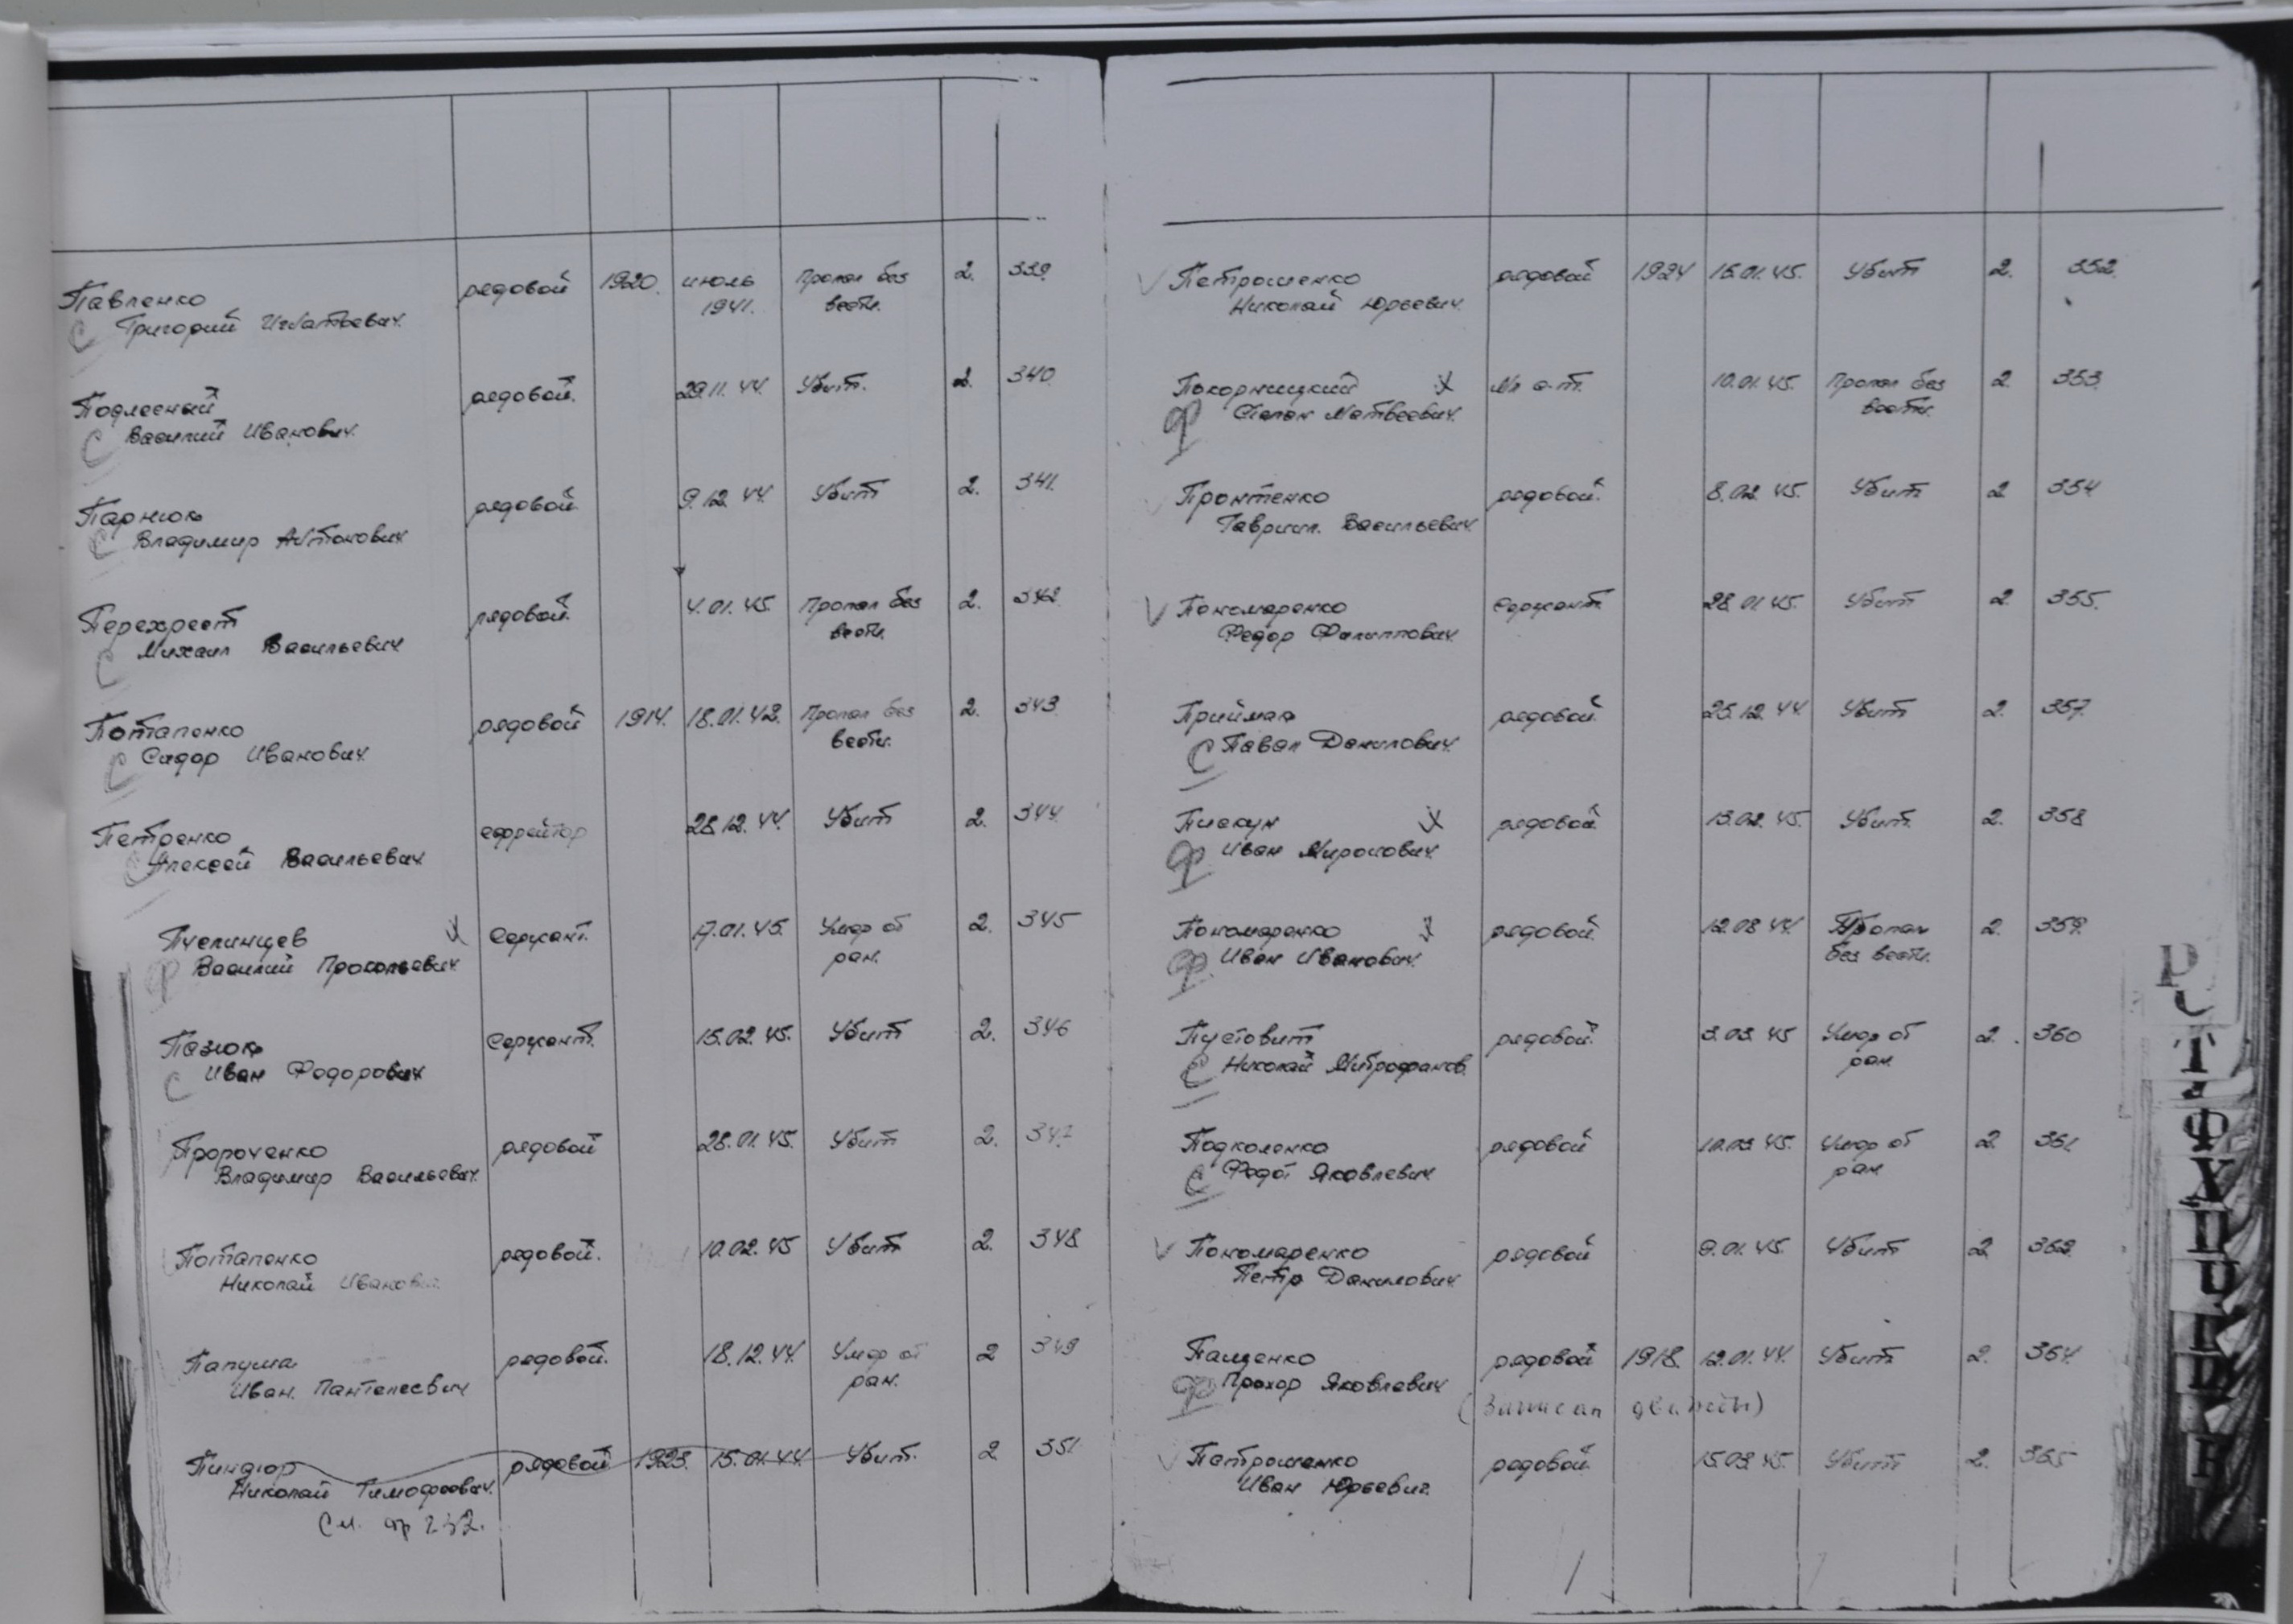 Павленко рядовой 1920. июль Пропал без 2. 339.
С Григорий Игнатьевич. 1941. вести.
Подлесный рядовой. 29.11.44. Убит. 2. 340.
С Василий Иванович.
Парнюк рядовой. 9.12.44. Убит 2. 341.
С Владимир Антонович
Перехрест рядовой. 4.01.45. Пропал без 2. 342.
С Михаил Васильевич вести.
Потапенко рядовой 1914. 18.01.42. Пропал без 2. 343.
С Сидор Иванович. вести.
Петренко ефрейтор 28.12.44. Убит 2. 344.
С Алексей Васильевич.
Пчелинцев сержант. 17.01.45. Умер от 2. 345
Ф Василий Прокопьевич ран.
Пазюк сержант. 15.02.45. Убит 2. 346
С Иван Федорович
Пророченко рядовой 28.01.45. Убит 2. 347
Владимир Васильевич.
Потапенко рядовой. 10.02.45 Убит 2. 348
Николай Иванович.
Папума рядовой. 18.12.44. Умер от 2 349
Иван. Пантелеевич ран.
Пиндюр рядовой 1923. 15.01.44. Убит. 2 351
Николай Тимофеевич.
См. стр 232.
V Петрошенко рядовой 1924 15.01.45. Убит 2. 352.
Николай Юрьевич.
Покорницкий Мл с-т. 10.01.45. Пропал без 2. 353.
Ф Степан Матвеевич. вести.
Пронтенко рядовой. 8.02.45. Убит 2 354
Гавриил. Васильевич.
V Пономаренко сержант. 28.01.45. Убит 2. 355.
Федор Филиппович
Приймак рядовой. 25.12.44. Убит 2. 357.
С Павел Данилович.
Пискун рядовой. 13.02.45. Убит. 2. 358
Ф Иван Миронович.
Пономаренко рядовой. 12.08.44. Пропал 2. 359.
Ф Иван Иванович. без вести.
Пустовит рядовой. 3.03.45 Умер от 2. 360
С Николай Митрофанов. ран.
Подколенко рядовой 10.03.45. Умер от 2 361.
С Федот Яковлевич ран
V Пономаренко рядовой 9.01.45. Убит 2 362.
Петр Данилович.
Пащенко рядовой 1918. 12.01.44. Убит 2. 364.
Ф Прохор Яковлевич
(Записан дважды)
V Петрошенко рядовой. 15.03.45. Убит 2. 365
Иван Юрьевич.
Р
С
Т
Ф
Х